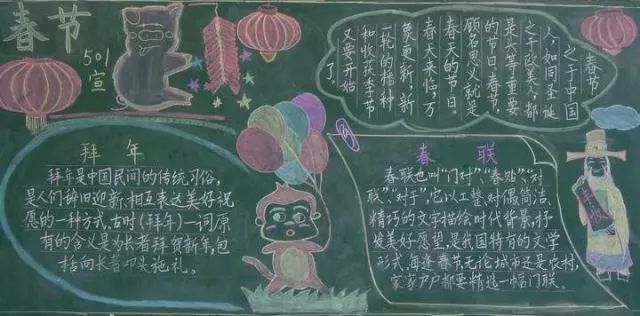 春节
501
宣
春节
之于中国
人,如同圣诞
之于欧美人,都
是六等重要
的节日。春节,
顾名思义就是
春天的节日。
春天来临,万
象更新,新
一轮的播种
和收获季节
又要开始
了。
拜年
拜年是中国民间的传统习俗,
是人们辞旧迎新、相互表达美好祝
愿的一种方式。古时(拜年)一词原
有的含义是为长者拜贺新年,包
括向长者叩头施礼。
春联
春联也叫“门对”、“春贴”、“对
联”、“对子”,它以工整、对偶、简洁、
精巧的文字描绘时代背景,抒
发美好愿望,是我国特有的文学
形式。每逢春节无论城市还是农村,
家家户户都要精选一幅门联。